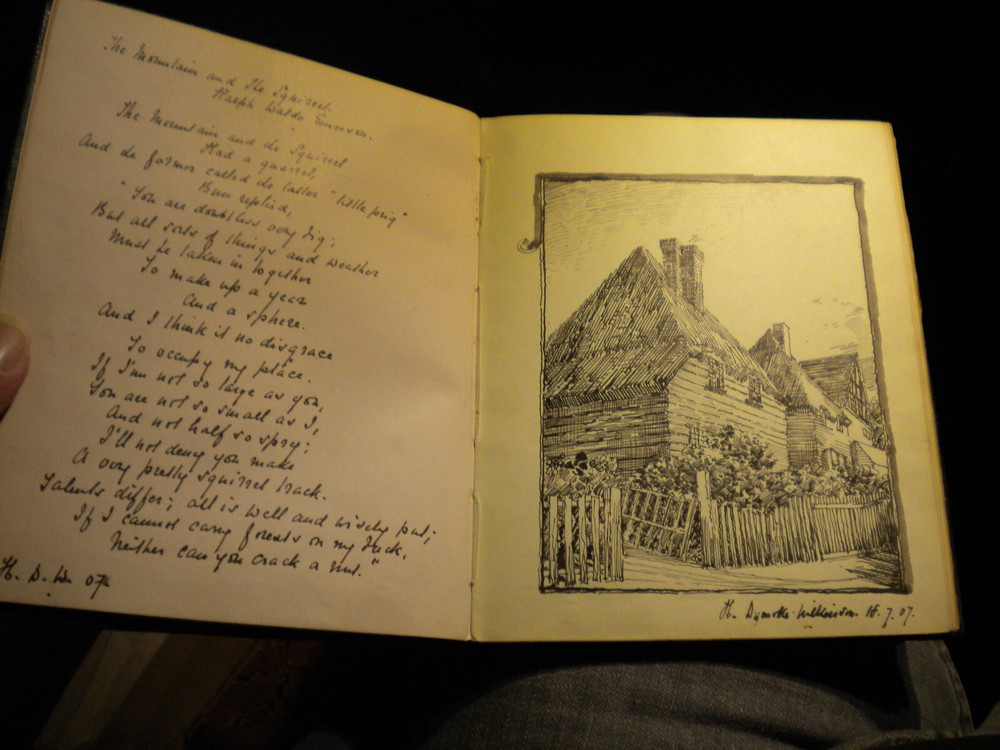 The Mountain and The Squirrel.
Ralph Waldo Emerson.
The Mountain and the Squirrel
Had a quarrel,
And the former called the latter "little prig"
Bun replied,
"You are doubtless very big;
But all sorts of things and weather
Must be taken in together
To make up a year
And a sphere.
And I think it no disgrace
To occupy my place.
If I'm not so large as you,
You are not so small as I,
And not half so spry;
I'll not deny you make
A very pretty squirrel track.
Talents differ; all is well and wisely put;
If I cannot carry forests on my back,
Neither can you crack a nut."
H. D. W. 07
H. Dymoke-Wilkinson. 18.7.07.